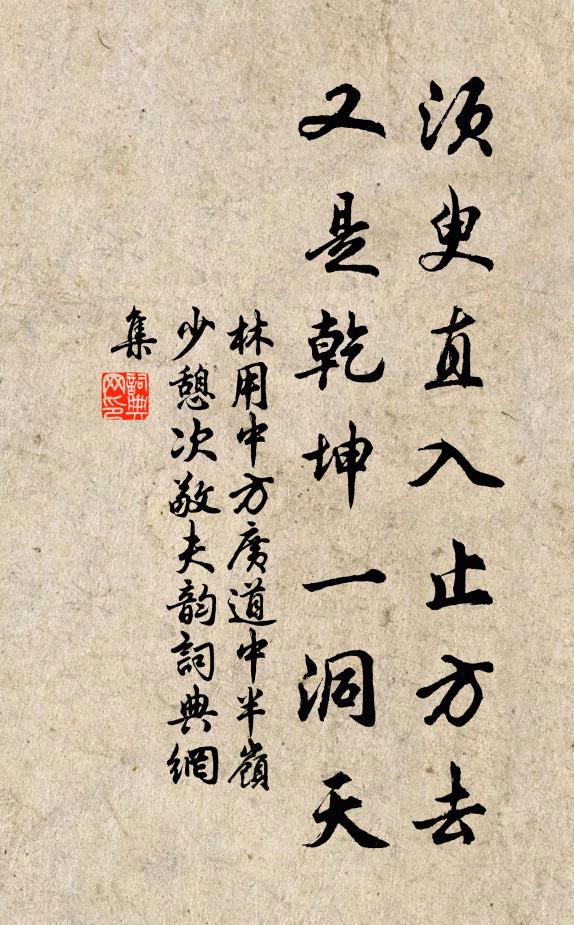 須臾直入止方去
又是乾坤一洞天
林用中方廣道中半嶺
少憩次敬夫韵詞典網
集
詞典
网印